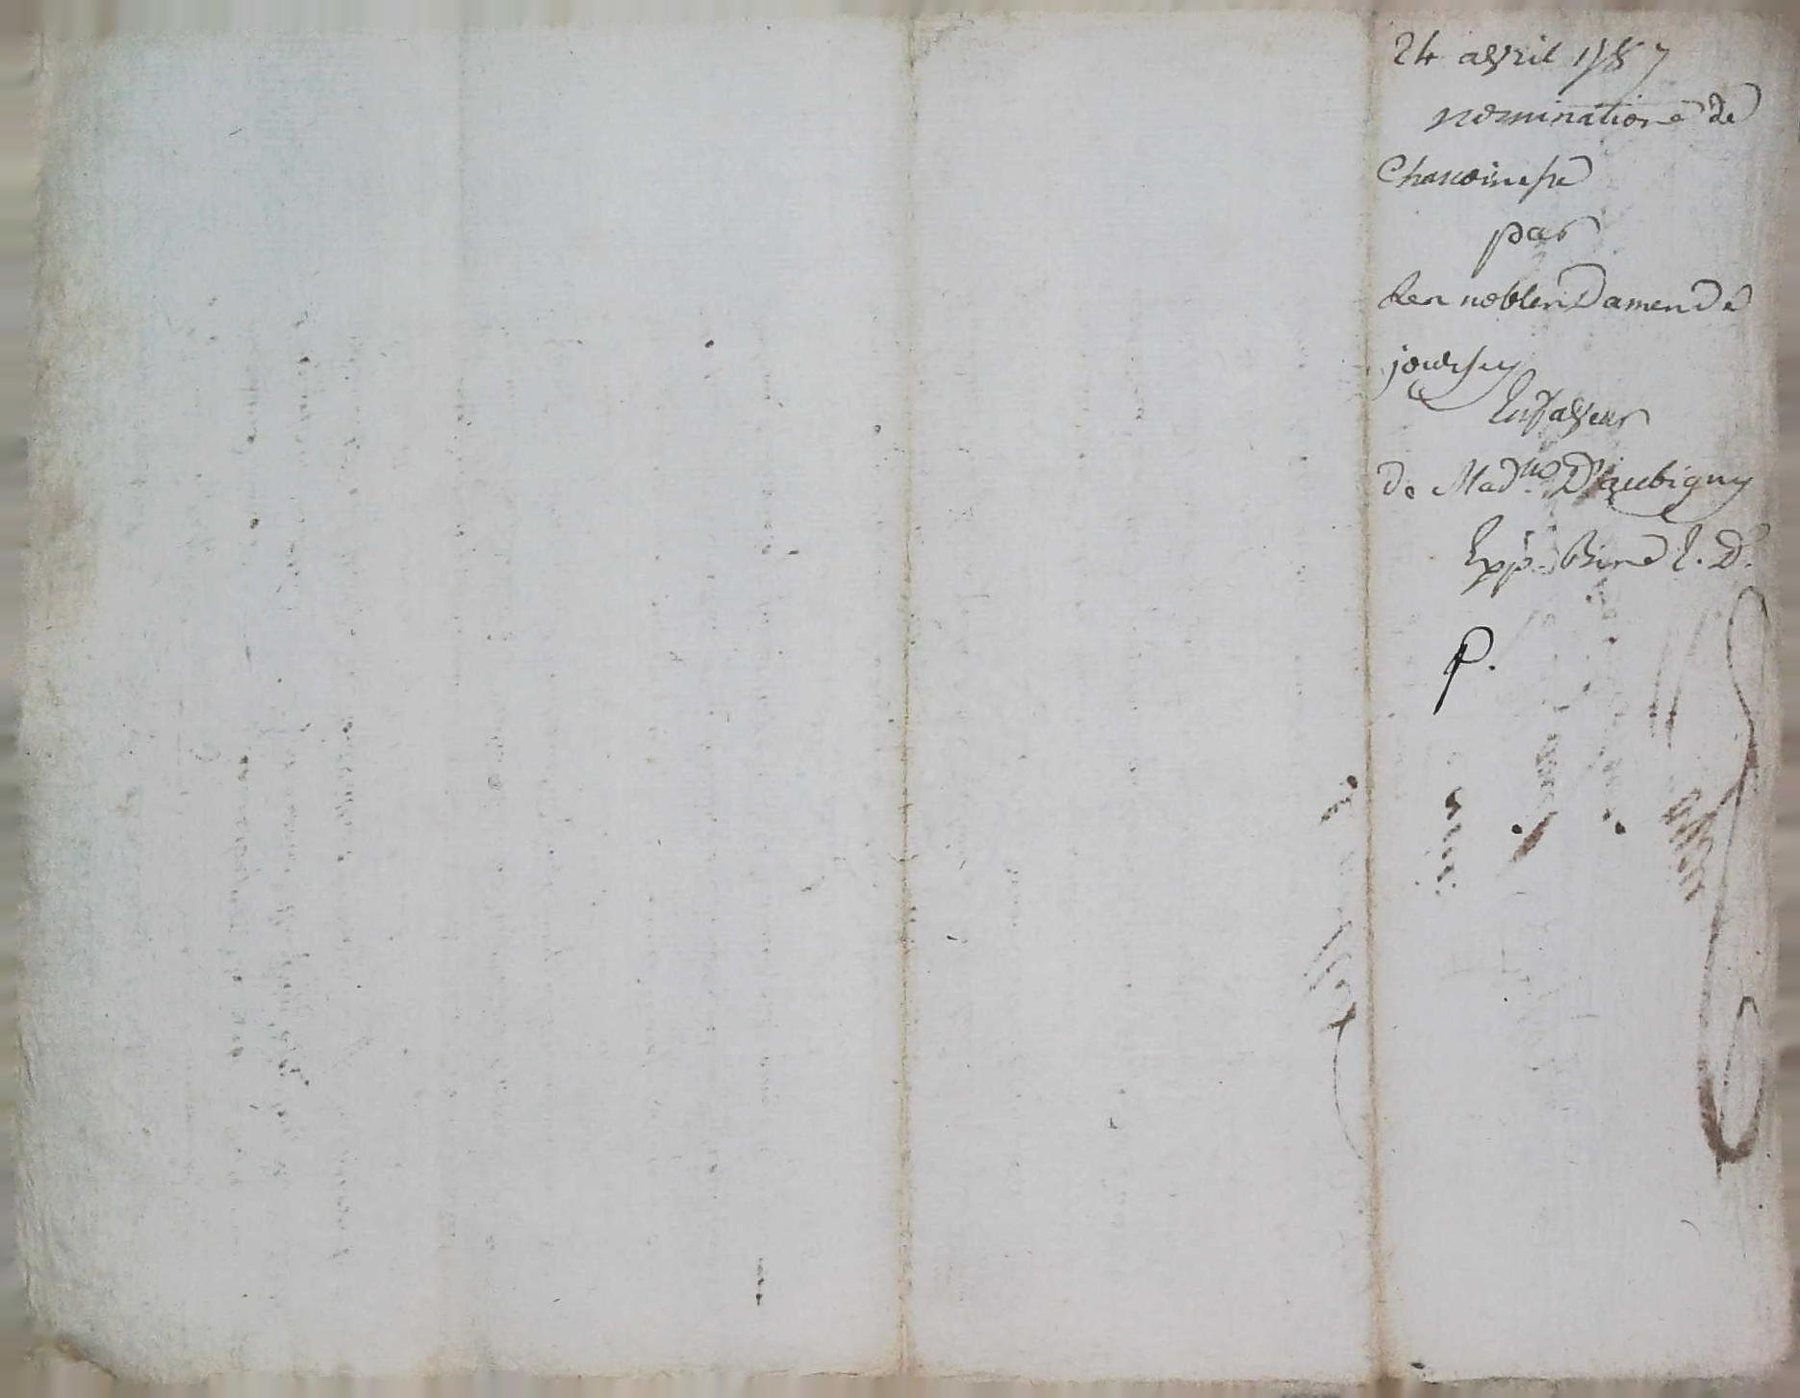 24 avril 1787
nomination de
Chanoinesse
par
les nobles Dames de
joursey
En faveur
de Mad.lle D'aubigny
Exp.
P.